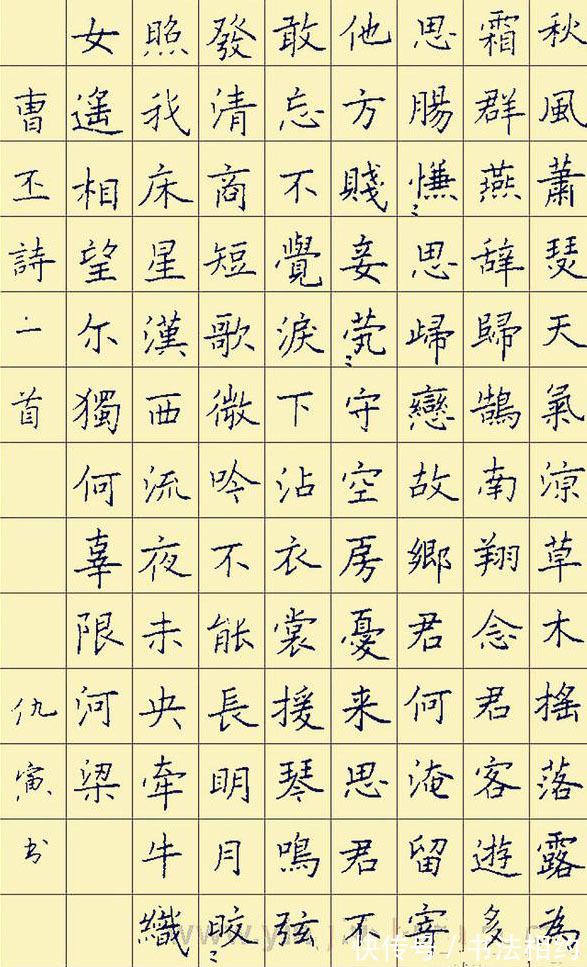 秋風蕭瑟天氣涼草木搖落露為
霜群燕辞歸鵠南翔念君客遊多
思腸慊〻思歸戀故鄉君何淹留寄
他方賤妾茕〻守空房憂来思君不
敢忘不覺淚下沾衣裳援琴鳴弦
發清商短歌微吟不能長明月皎〻
照我床星漢西流夜未央牽牛織
女遙相望尔獨何辜限河梁
曹丕詩二首
仇寅书
快传号 / 书法相约